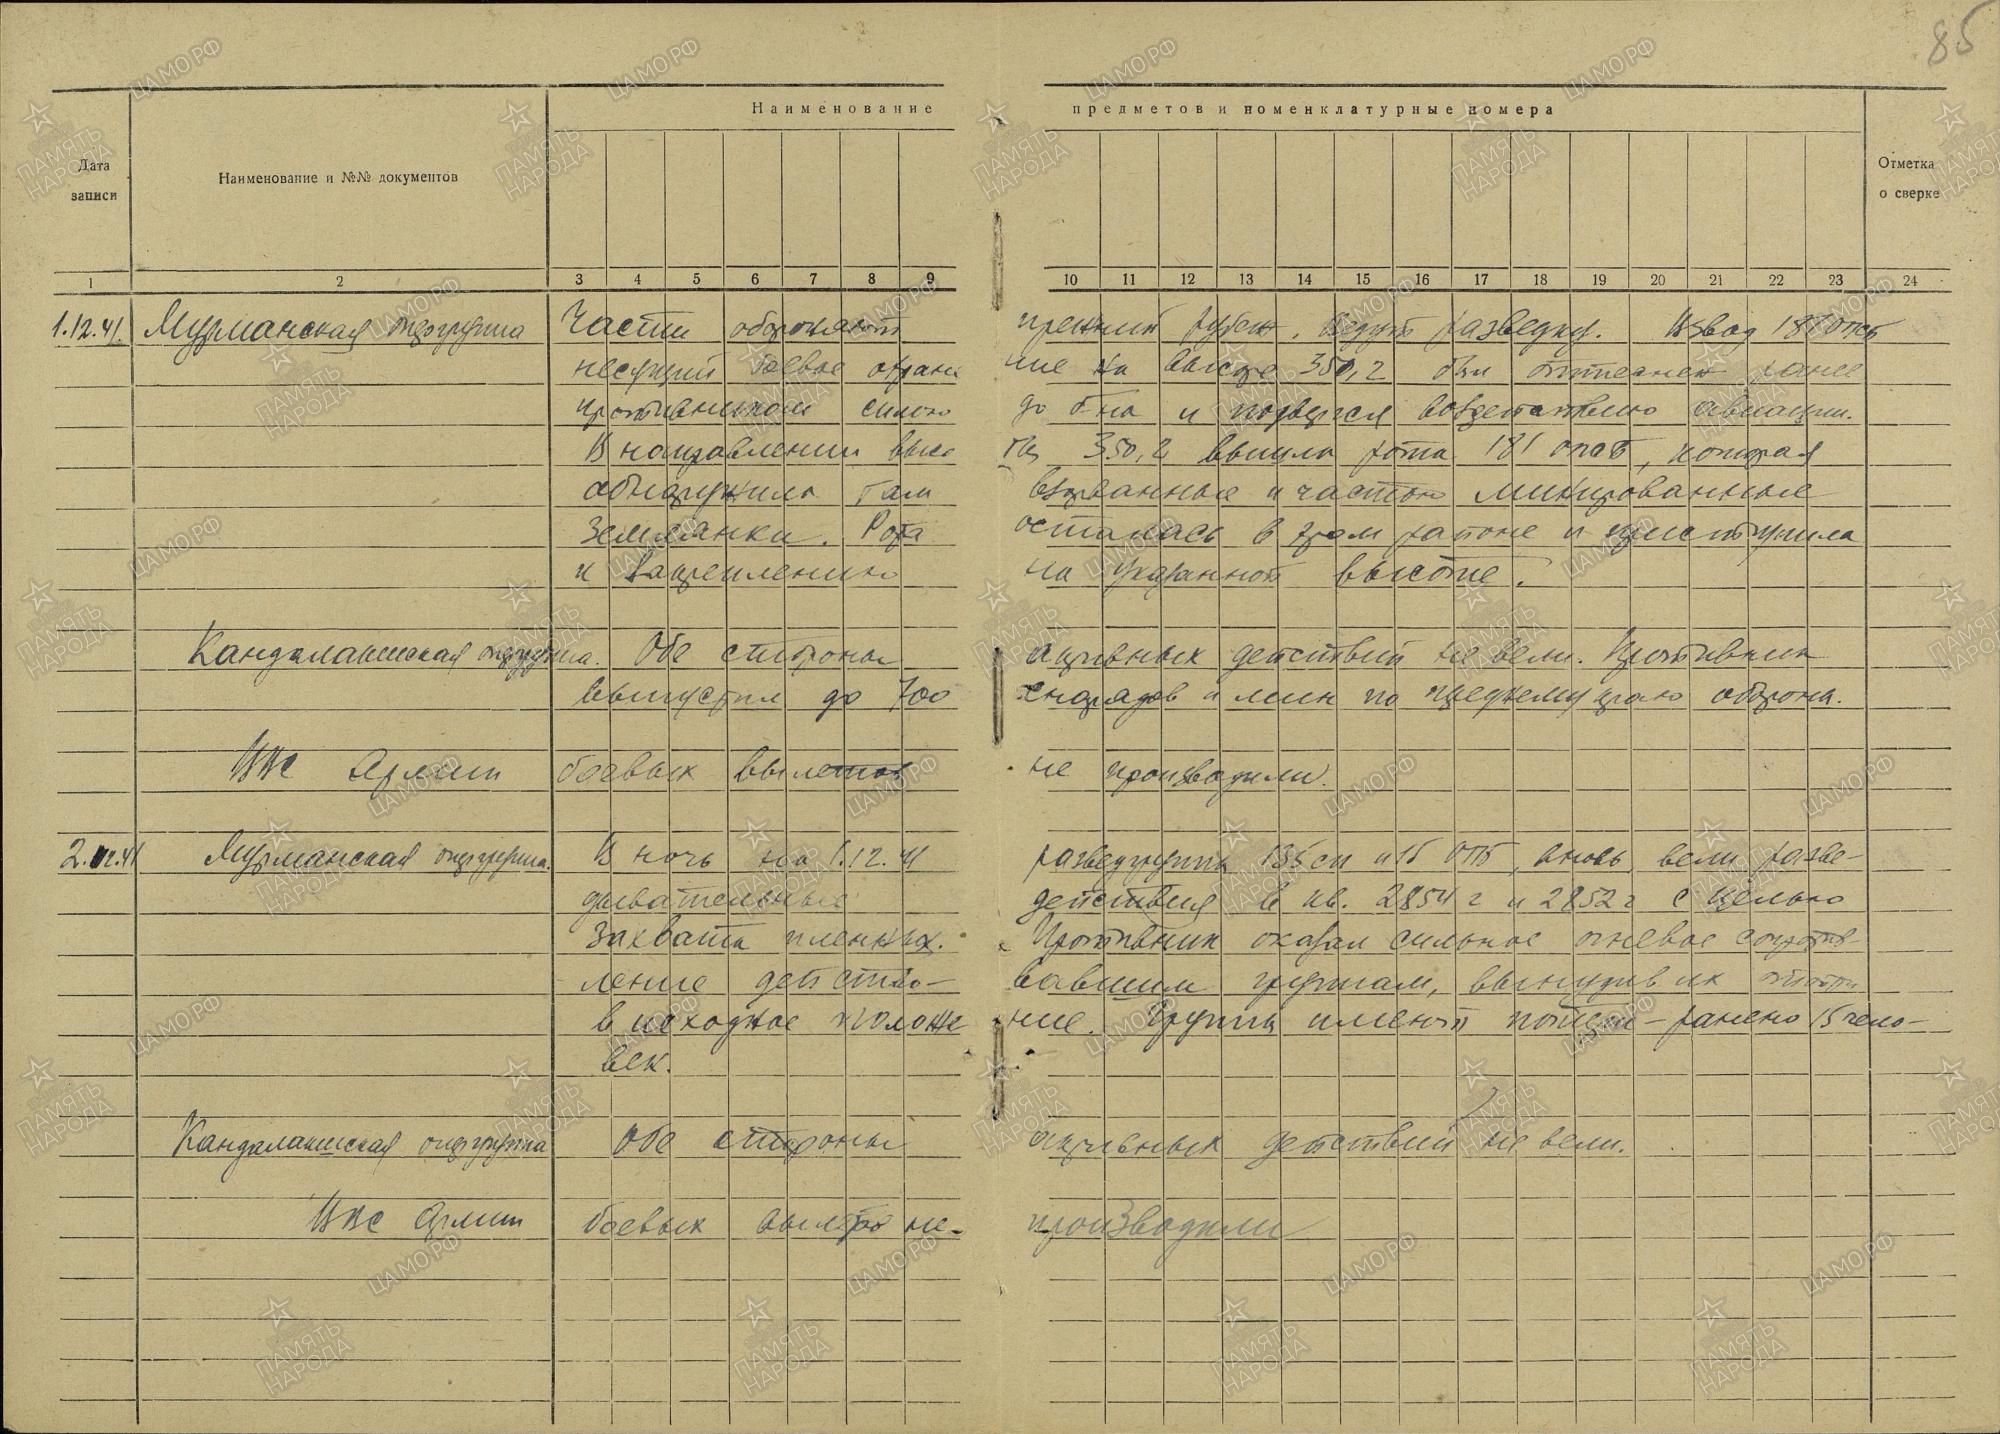 85
Наименование предметов и номенклатурные номера
Дата записи
Наименование и №№ документов
Отметка о сверке
1 2 3 4 5 6 7 8 9 10 11 12 13 14 15 16 17 18 19 20 21 22 23 24
1.12.41. Мурманская опергруппа Части обороняют прежний рубеж, ведут разведку. Взвод 181 опб
несущий боевое охранение на высоте 350,2 был оттеснен ранее
противником силою до б-на и подвергся воздействию авиации.
В направлении высоты 350,2 вышла рота 181 опб, которая
обнаружила там взорванные и частью минированные
землянки. Рота осталась в этом районе и приступила
к закреплению на указанной высоте.
Кандалакшская опергруппа. Обе стороны активных действий не вели. Противник
выпустил до 700 снарядов и мин по переднему краю обороны.
ВВС Армии боевых вылетов не производили.
2.12.41 Мурманская опергруппа. В ночь на 1.12.41 разведгруппы 135 сп и 15 ОПБ, вновь вели разве-
дывательные действия в кв. 2854 г и 2852 г с целью
захвата пленных. Противник оказал сильное огневое сопротив-
ление действо-вавшим группам, вынудив их отойти
в исходное положение. Группы имеют потери - ранено 15 чело-
век.
Кандалакшская опергруппа Обе стороны активных действий не вели.
ВВС Армии боевых вылетов не производили